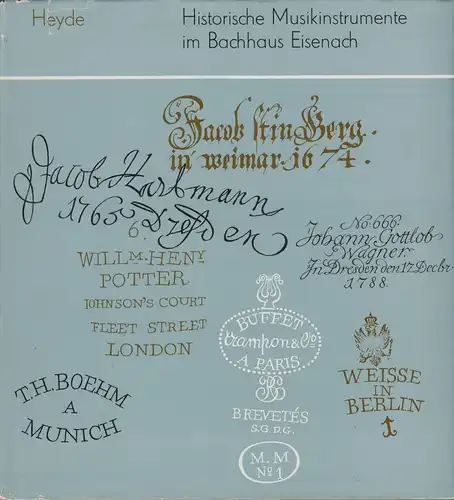 Heyde
Historische Musikinstrumente
im Bachhaus Eisenach
Jacob ſtin Berg.
in weimar. 1674.
Jacob Hartmann
1765 Dreſden
6.
WILLM. HENY
POTTER
JOHNSON'S COURT
FLEET STREET
LONDON
No. 666.
Johann Gottlob
Wagner
In Dresden den 17. Decbr
1788.
BUFFET
Crampon & Cie
A PARIS
BREVETÉS
S.G.D.G.
M.M
No 1
WEISSE
IN
BERLIN
T.H. BOEHM
A
MUNICH